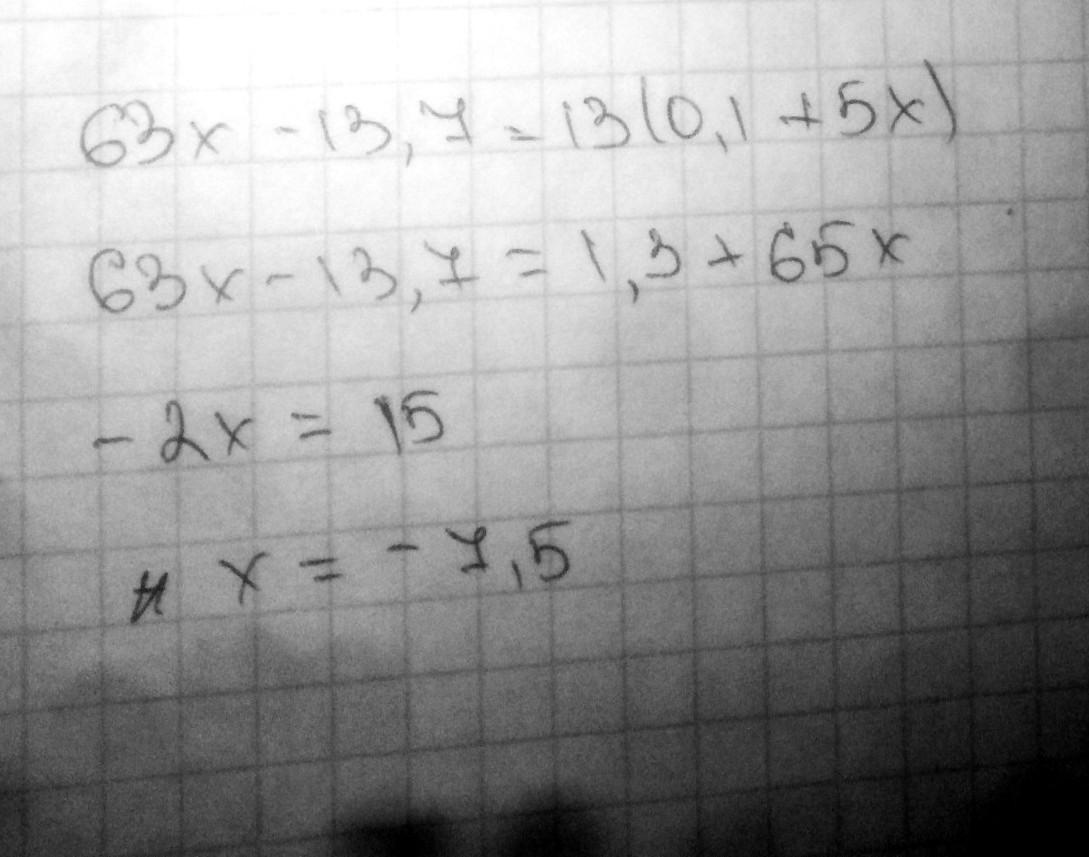 63x - 13,7 = 13(0,1 + 5x)
63x - 13,7 = 1,3 + 65x
- 2x = 15
x = - 7,5